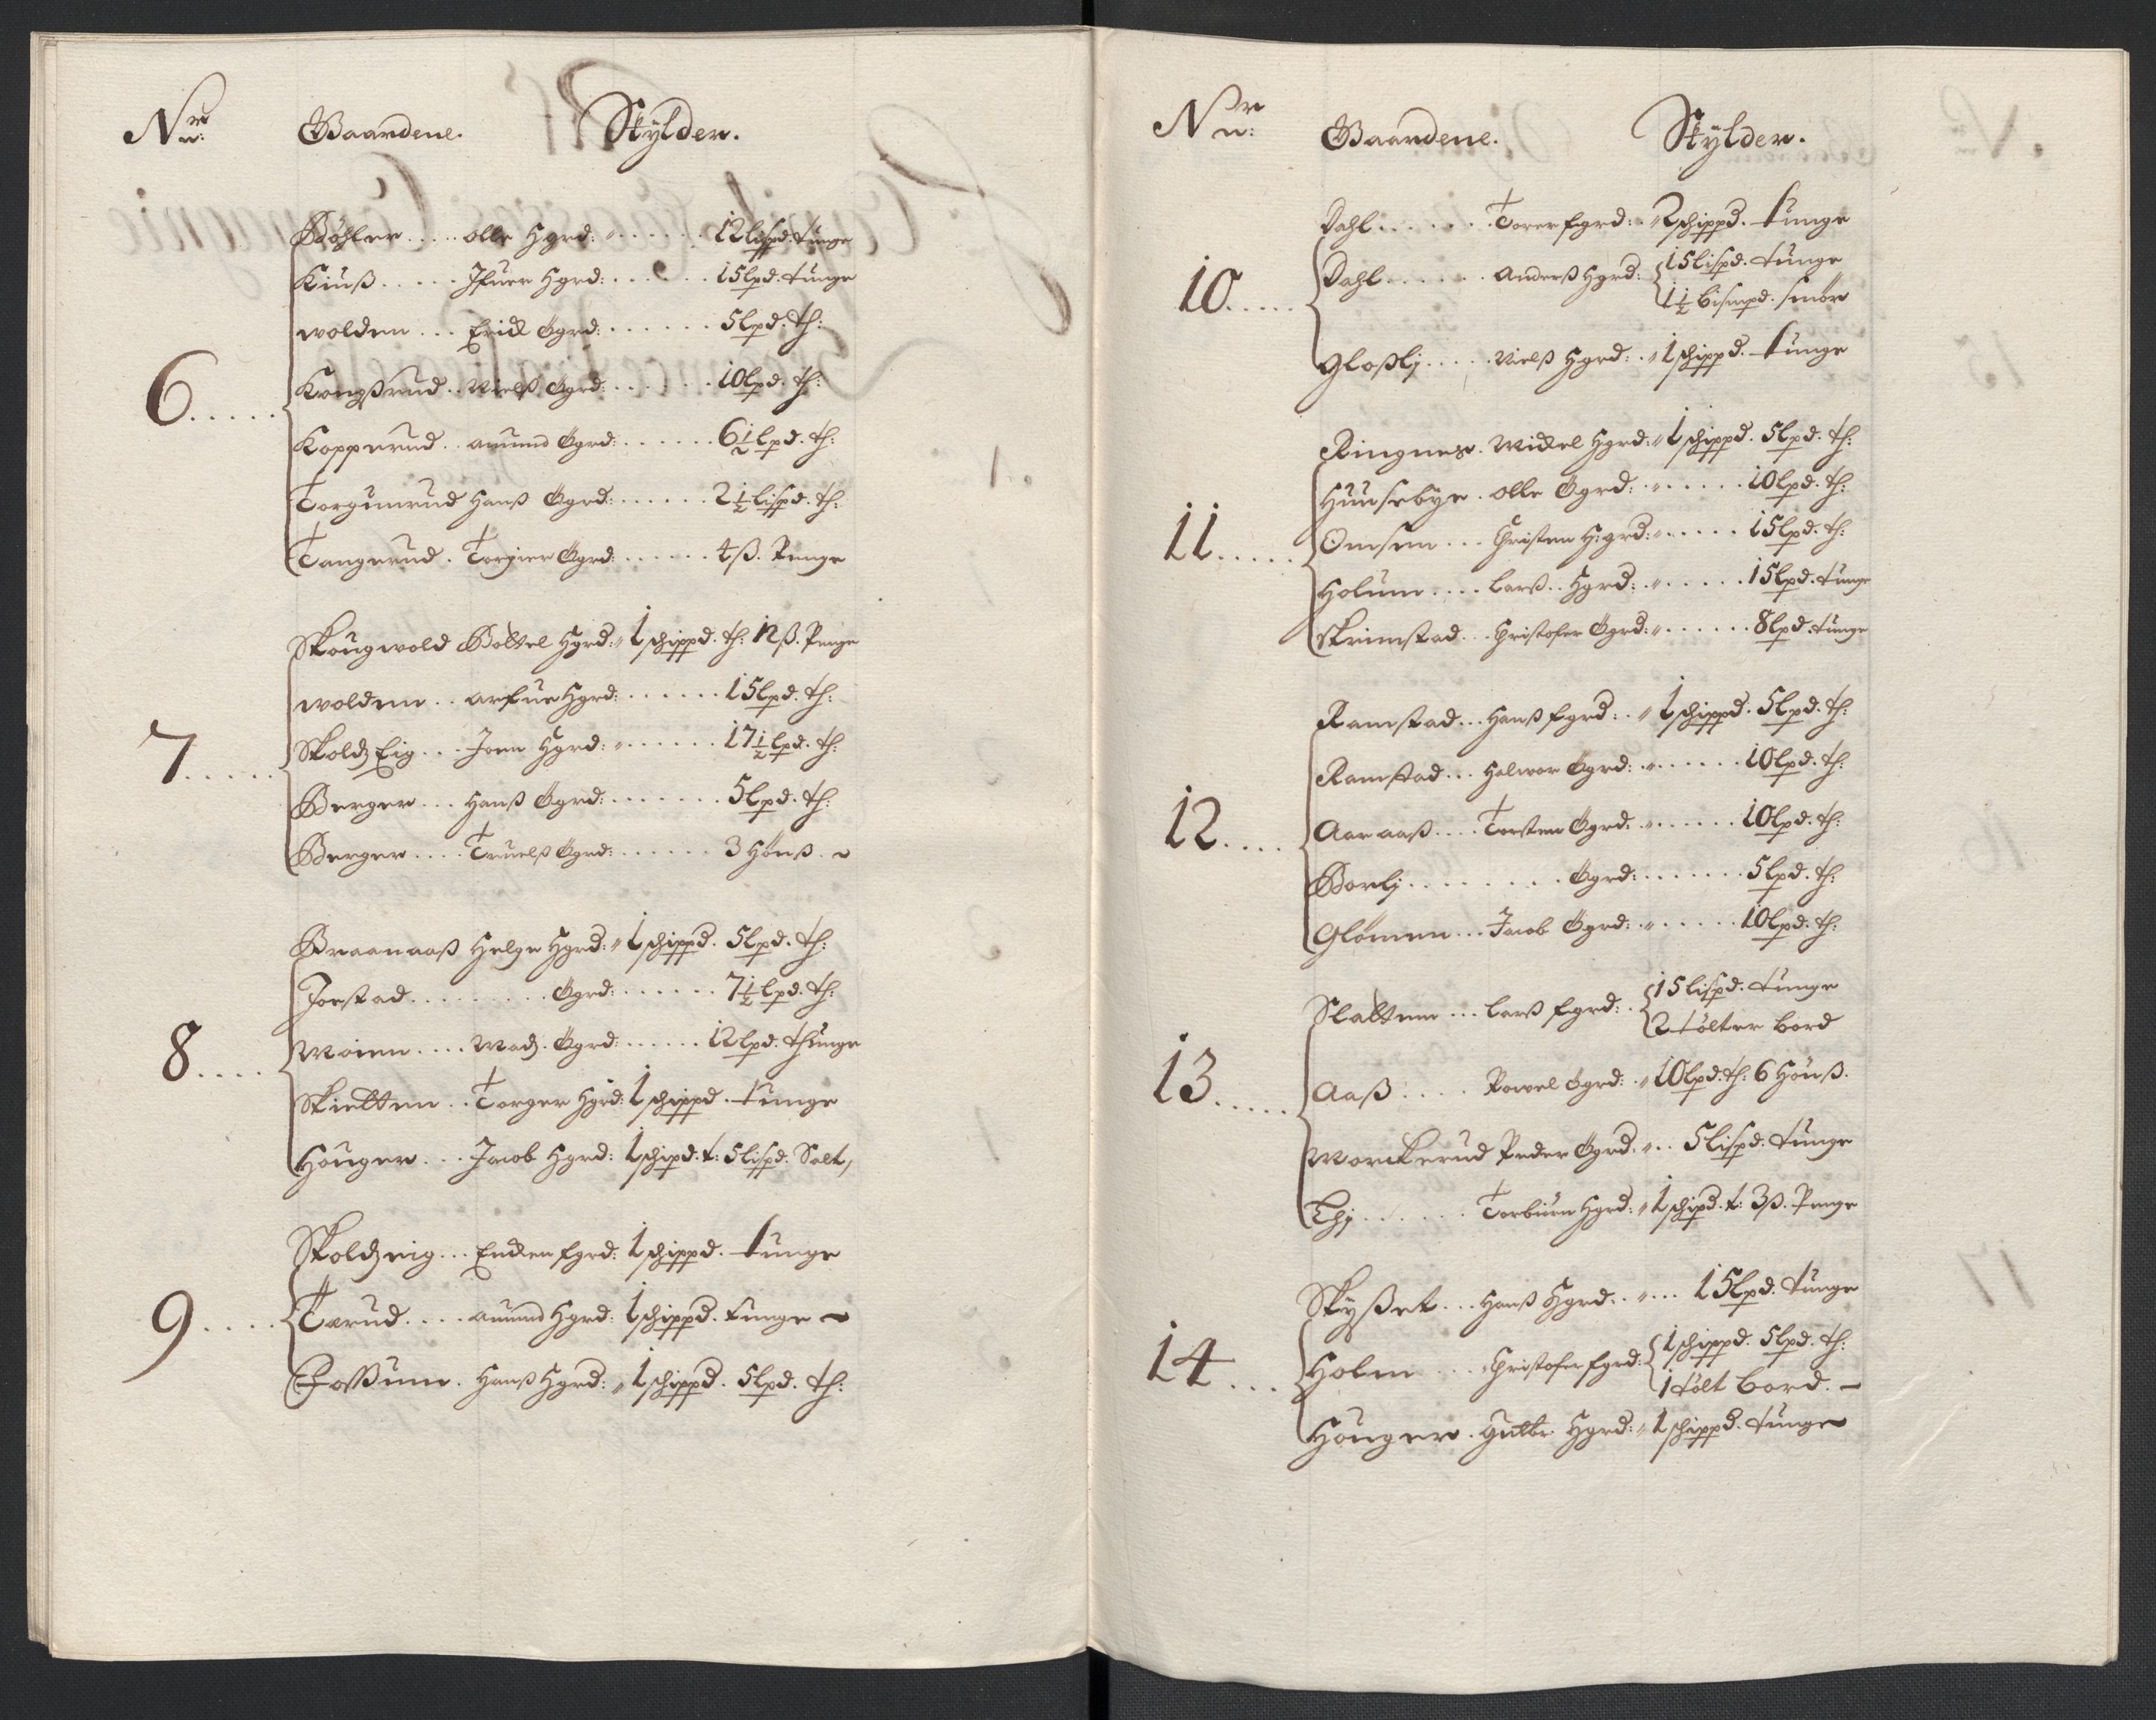 Nr: Gaardene. Skylder.
Bøhler..... olle Hgrd: ...... 12 lispd. tunge
Kiuß..... Ifuer Hgrd: ...... 15 lpd. tunge
wolden... Erich Ögrd: ...... 5 lpd. th:
Kongßrud.. Nielß Ögrd: ...... 10 lpd. th:
6..... Kopperud.. amund Ögrd: ...... 6½ lpd. th:
Torgunrud Hanß Ögrd: ...... 2½ lispd. th:
Tangerud. Torgier Ögrd: ...... 4 ß. Penge
Skougwold Bottel Hgrd: „ 1 schippd. th: 12 ß. Penge
wolden.. arfue Hgrd: ...... 15 lpd. th:
7..... Skoldz Eig... Joen Hgrd: „...... 17½ lpd. th:
Berger... Hanß Ögrd: ....... 5 lpd. th:
Berger.... Truelß Ögrd: ...... 3 Hönß.
Braanaaß Helge Hgrd: „ 1 schippd. 5 lpd. th:
Jorstad......... Ögrd: ...... 7½ lpd. th:
8.... Moien.... Madz. Ögrd: ...... 12 lpd. thunge
Skietten.. Torger Hgrd: 1 schippd. tunge
Houger... Jacob Hgrd: 1 schipd. t: 5 lispd. Salt,
Skoldz eig... Endren fgrd: 1 schippd. tunge
9.... Tarud.... amund Hgrd: 1 schippd. tunge
Foßum. Hanß Hgrd: „ 1 schippd. 5 lpd. th:
Nr: Gaardene. Skylder.
Dahl...... Torer fgrd: „ 2 schippd. tunge
10..... Dahl...... Anderß Hgrd: 15 lispd. tunge
1½ bismpd. smör
Gloßlj.... Nielß Hgrd: „ 1 schippd. tunge
Ringnes. Mickel Hgrd: „ 1 schippd. 5 lpd. th:
Huusebye. olle Ögrd: „..... 10 lpd. th:
11..... Omsen... Christen H: grd: „..... 15 lpd. th:
Holum.... Larß.. Hgrd: „..... 15 lpd. tunge
Skrimstad... Christofer Ögrd: „...... 8 lpd. tunge
Ramstad... Hanß fgrd: „ 1 schippd. 5 lpd. th:
Ramstad... Halwor Ögrd: „...... 10 lpd. th:
12.... Aaraaß.... Torsten Ögrd: „...... 10 lpd. th:
Borlj........ Ögrd: ....... 5 lpd. th:
Glömen... Jacob Ögrd: „...... 10 lpd. th:
Slatten... Larß fgrd: 15 lispd. tunge
2 tölter bord
13..... Aaß..... Powel Ögrd: „ 10 lpd. th: 6 Hönß.
Morckerud Peder Ögrd. „.. 5 lispd. tunge
Ehj...... Torbiörn Hgrd: „ 1 schipd. t: 3 ß. Penge
Skyßet... Hanß Hgrd: „... 15 lpd. tunge
14... Holm.... Christofer fgrd: 1 schippd. 5 lpd. th:
1 tölt bord.
Houger. Gulbr. Hgrd: „ 1 schippd. tunge